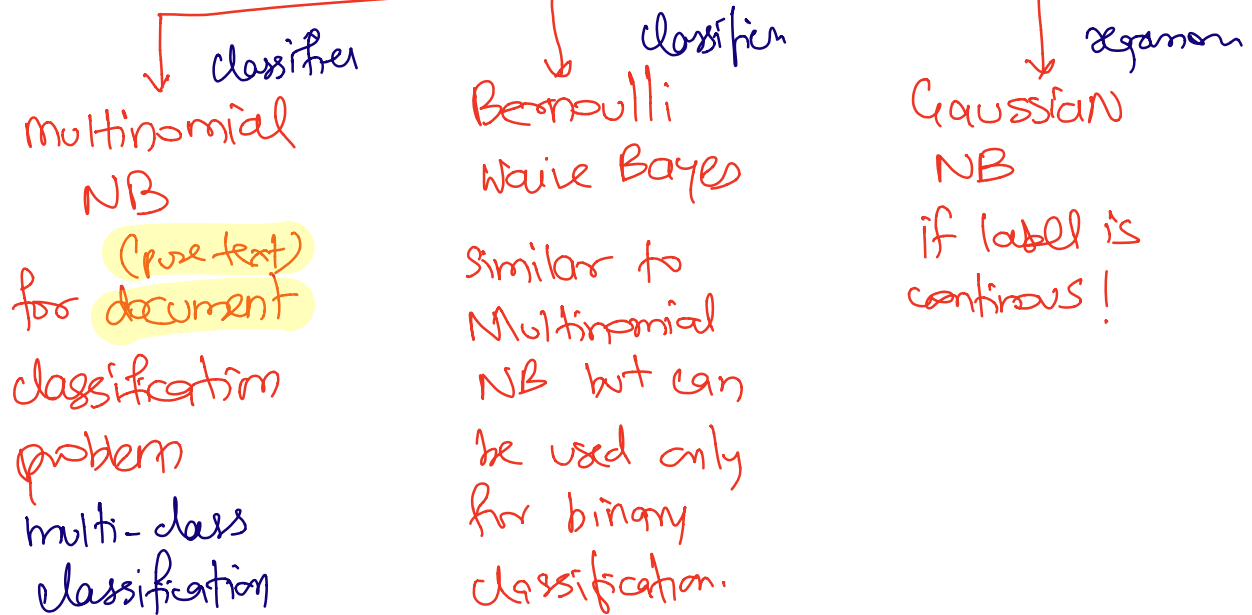 classifier
multinomial
NB
(pure text)
for document
classification
problem
multi-class
classification
classifier
Bernoulli
Naive Bayes
similar to
Multinomial
NB but can
be used only
for binary
classification.
Gaussian
NB
if label is
continous!